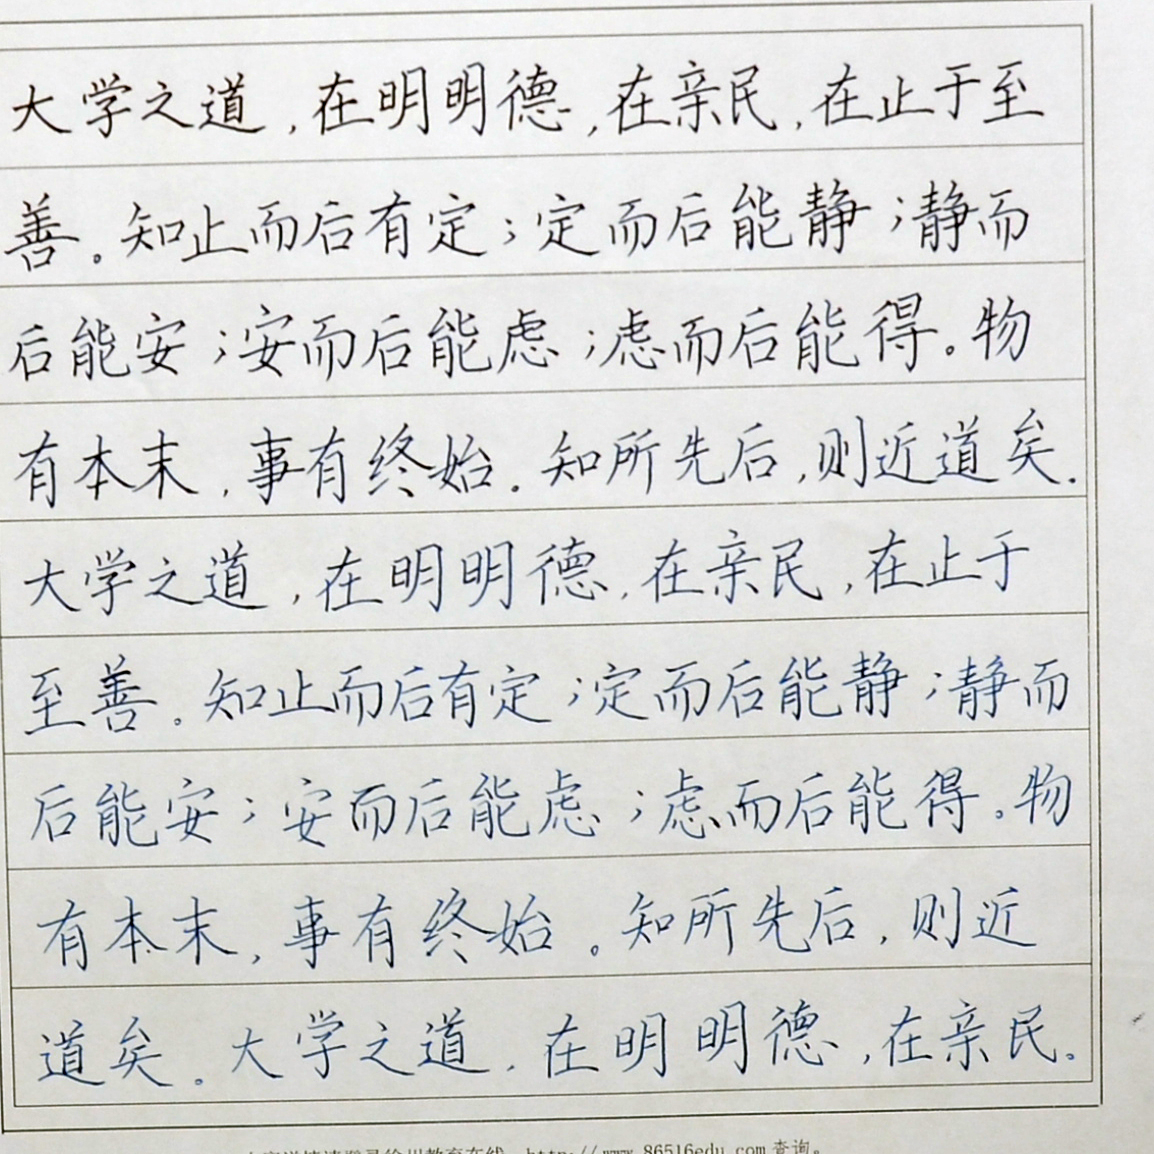 大学之道，在明明德，在亲民，在止于至
善。知止而后有定；定而后能静；静而
后能安；安而后能虑；虑而后能得。物
有本末，事有终始。知所先后，则近道矣.
大学之道，在明明德，在亲民，在止于
至善。知止而后有定；定而后能静；静而
后能安；安而后能虑；虑而后能得。物
有本末，事有终始。知所先后，则近
道矣。大学之道，在明明德，在亲民。
http://www.86516edu.com 查询。